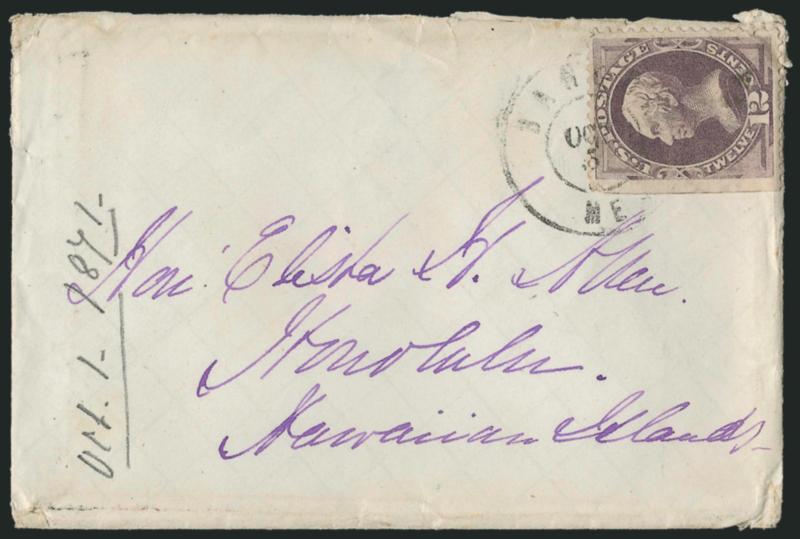 Hon. Elisha H. Allen.
Honolulu.
Hawaiian Islands
Oct. 1- 1871-
OC
ME
U.S. POSTAGE
TWELVE 12 CENTS